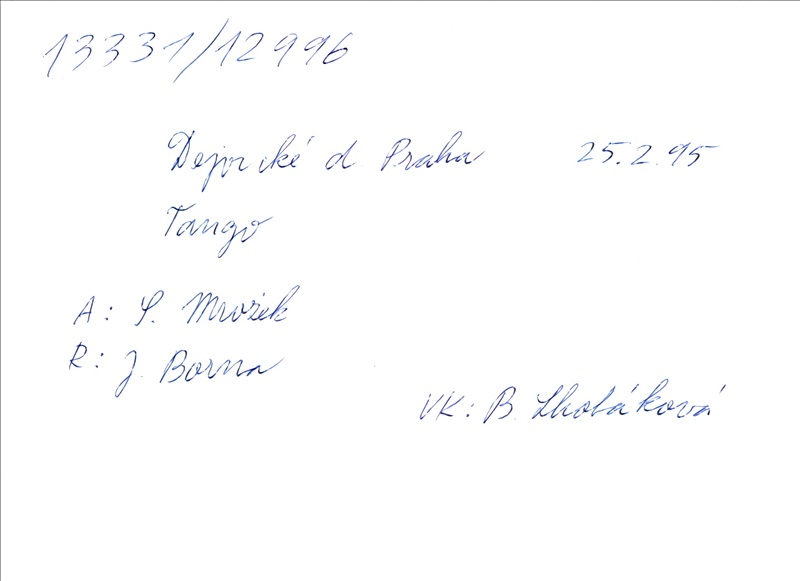 13331/12996
Dejvické d. Praha 25.2.95
Tango
A: S. Mrožek
R: J. Borna
VK: B. Lhotáková